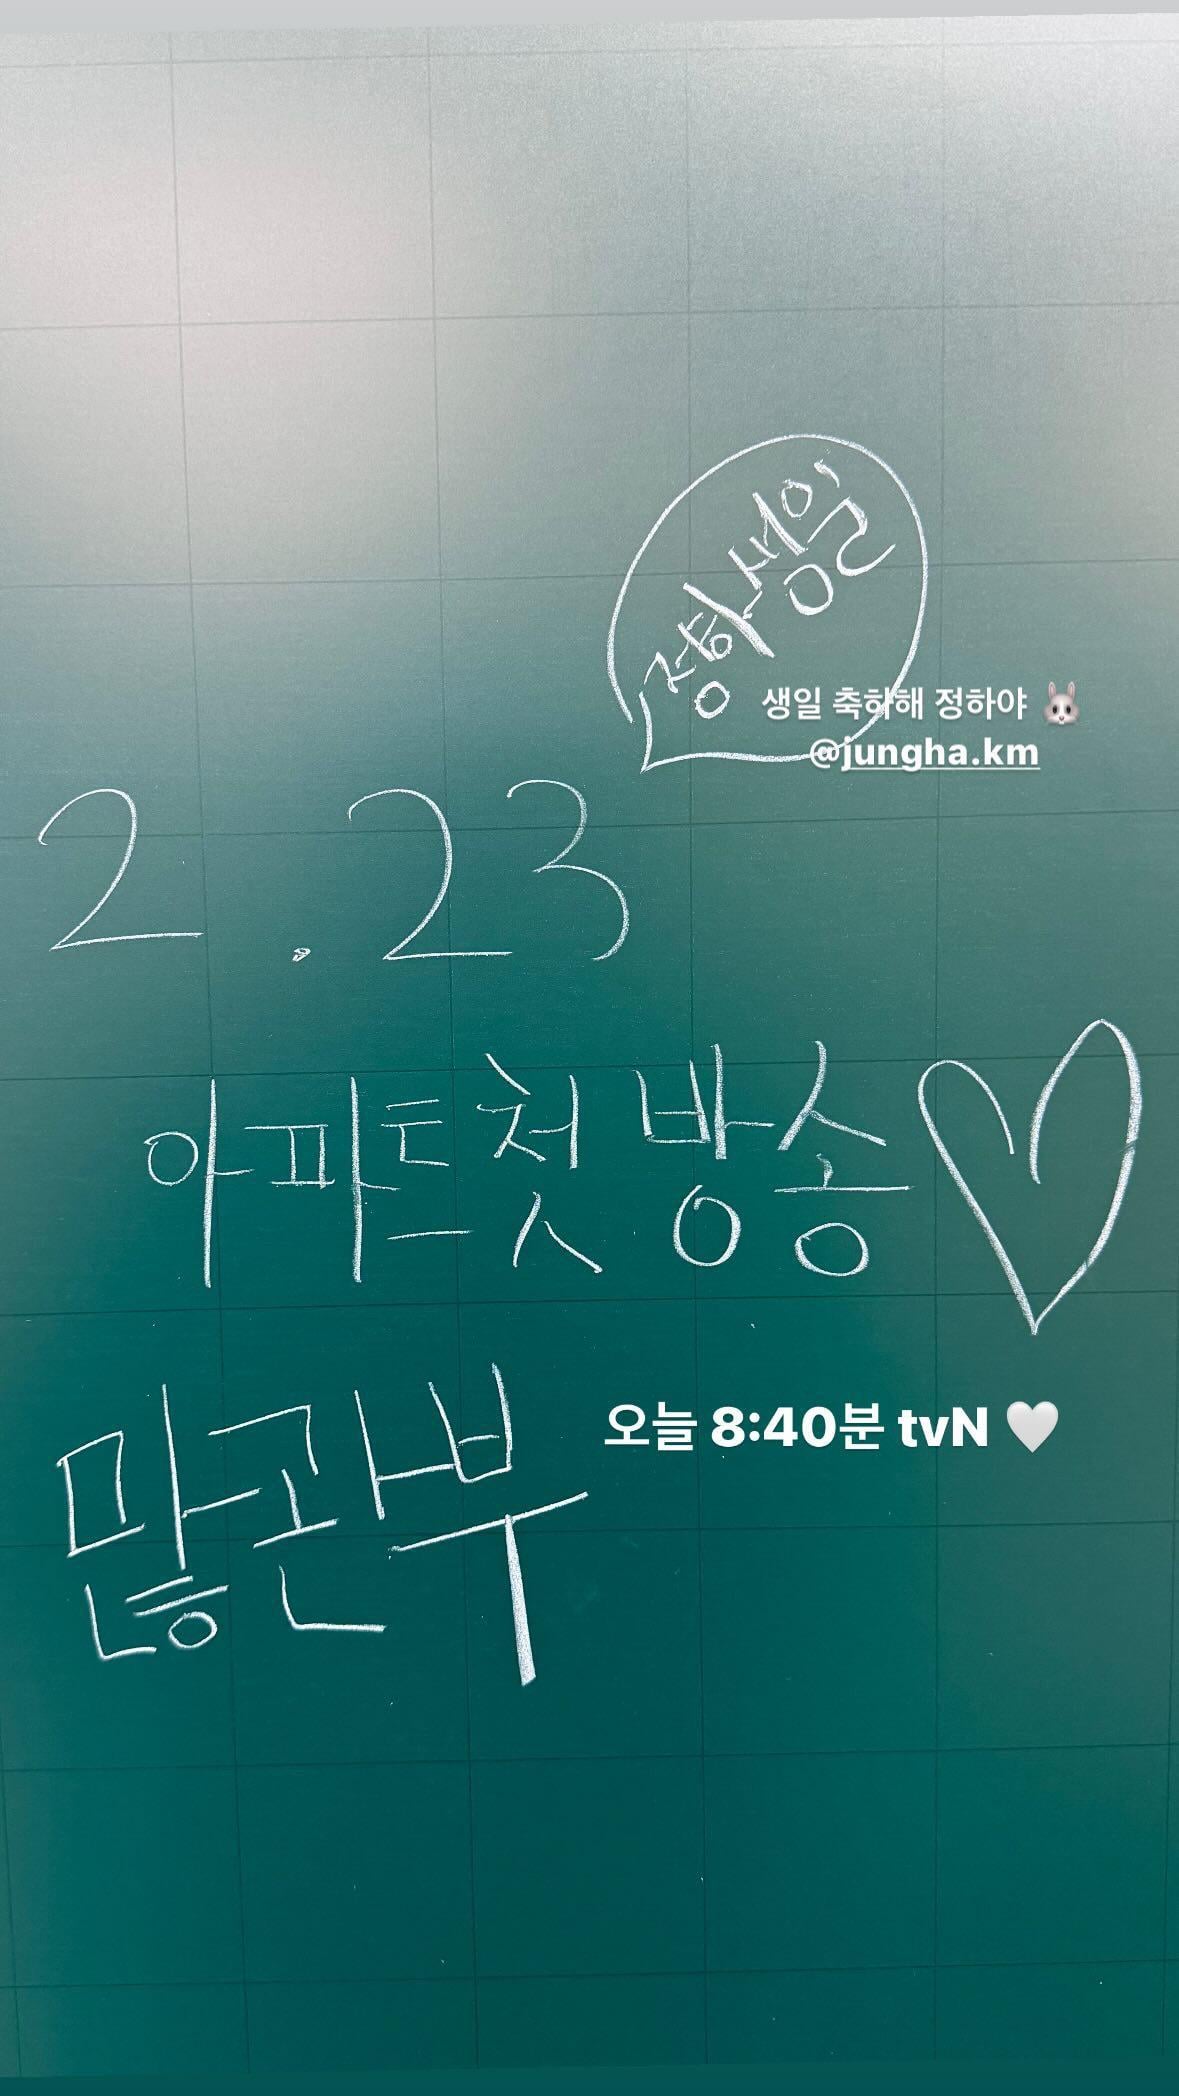 정하생일
생일 축하해 정하야 🐰
@jungha.km
2.23
아파트첫방송♡
많관부
오늘 8:40분 tvN 🤍